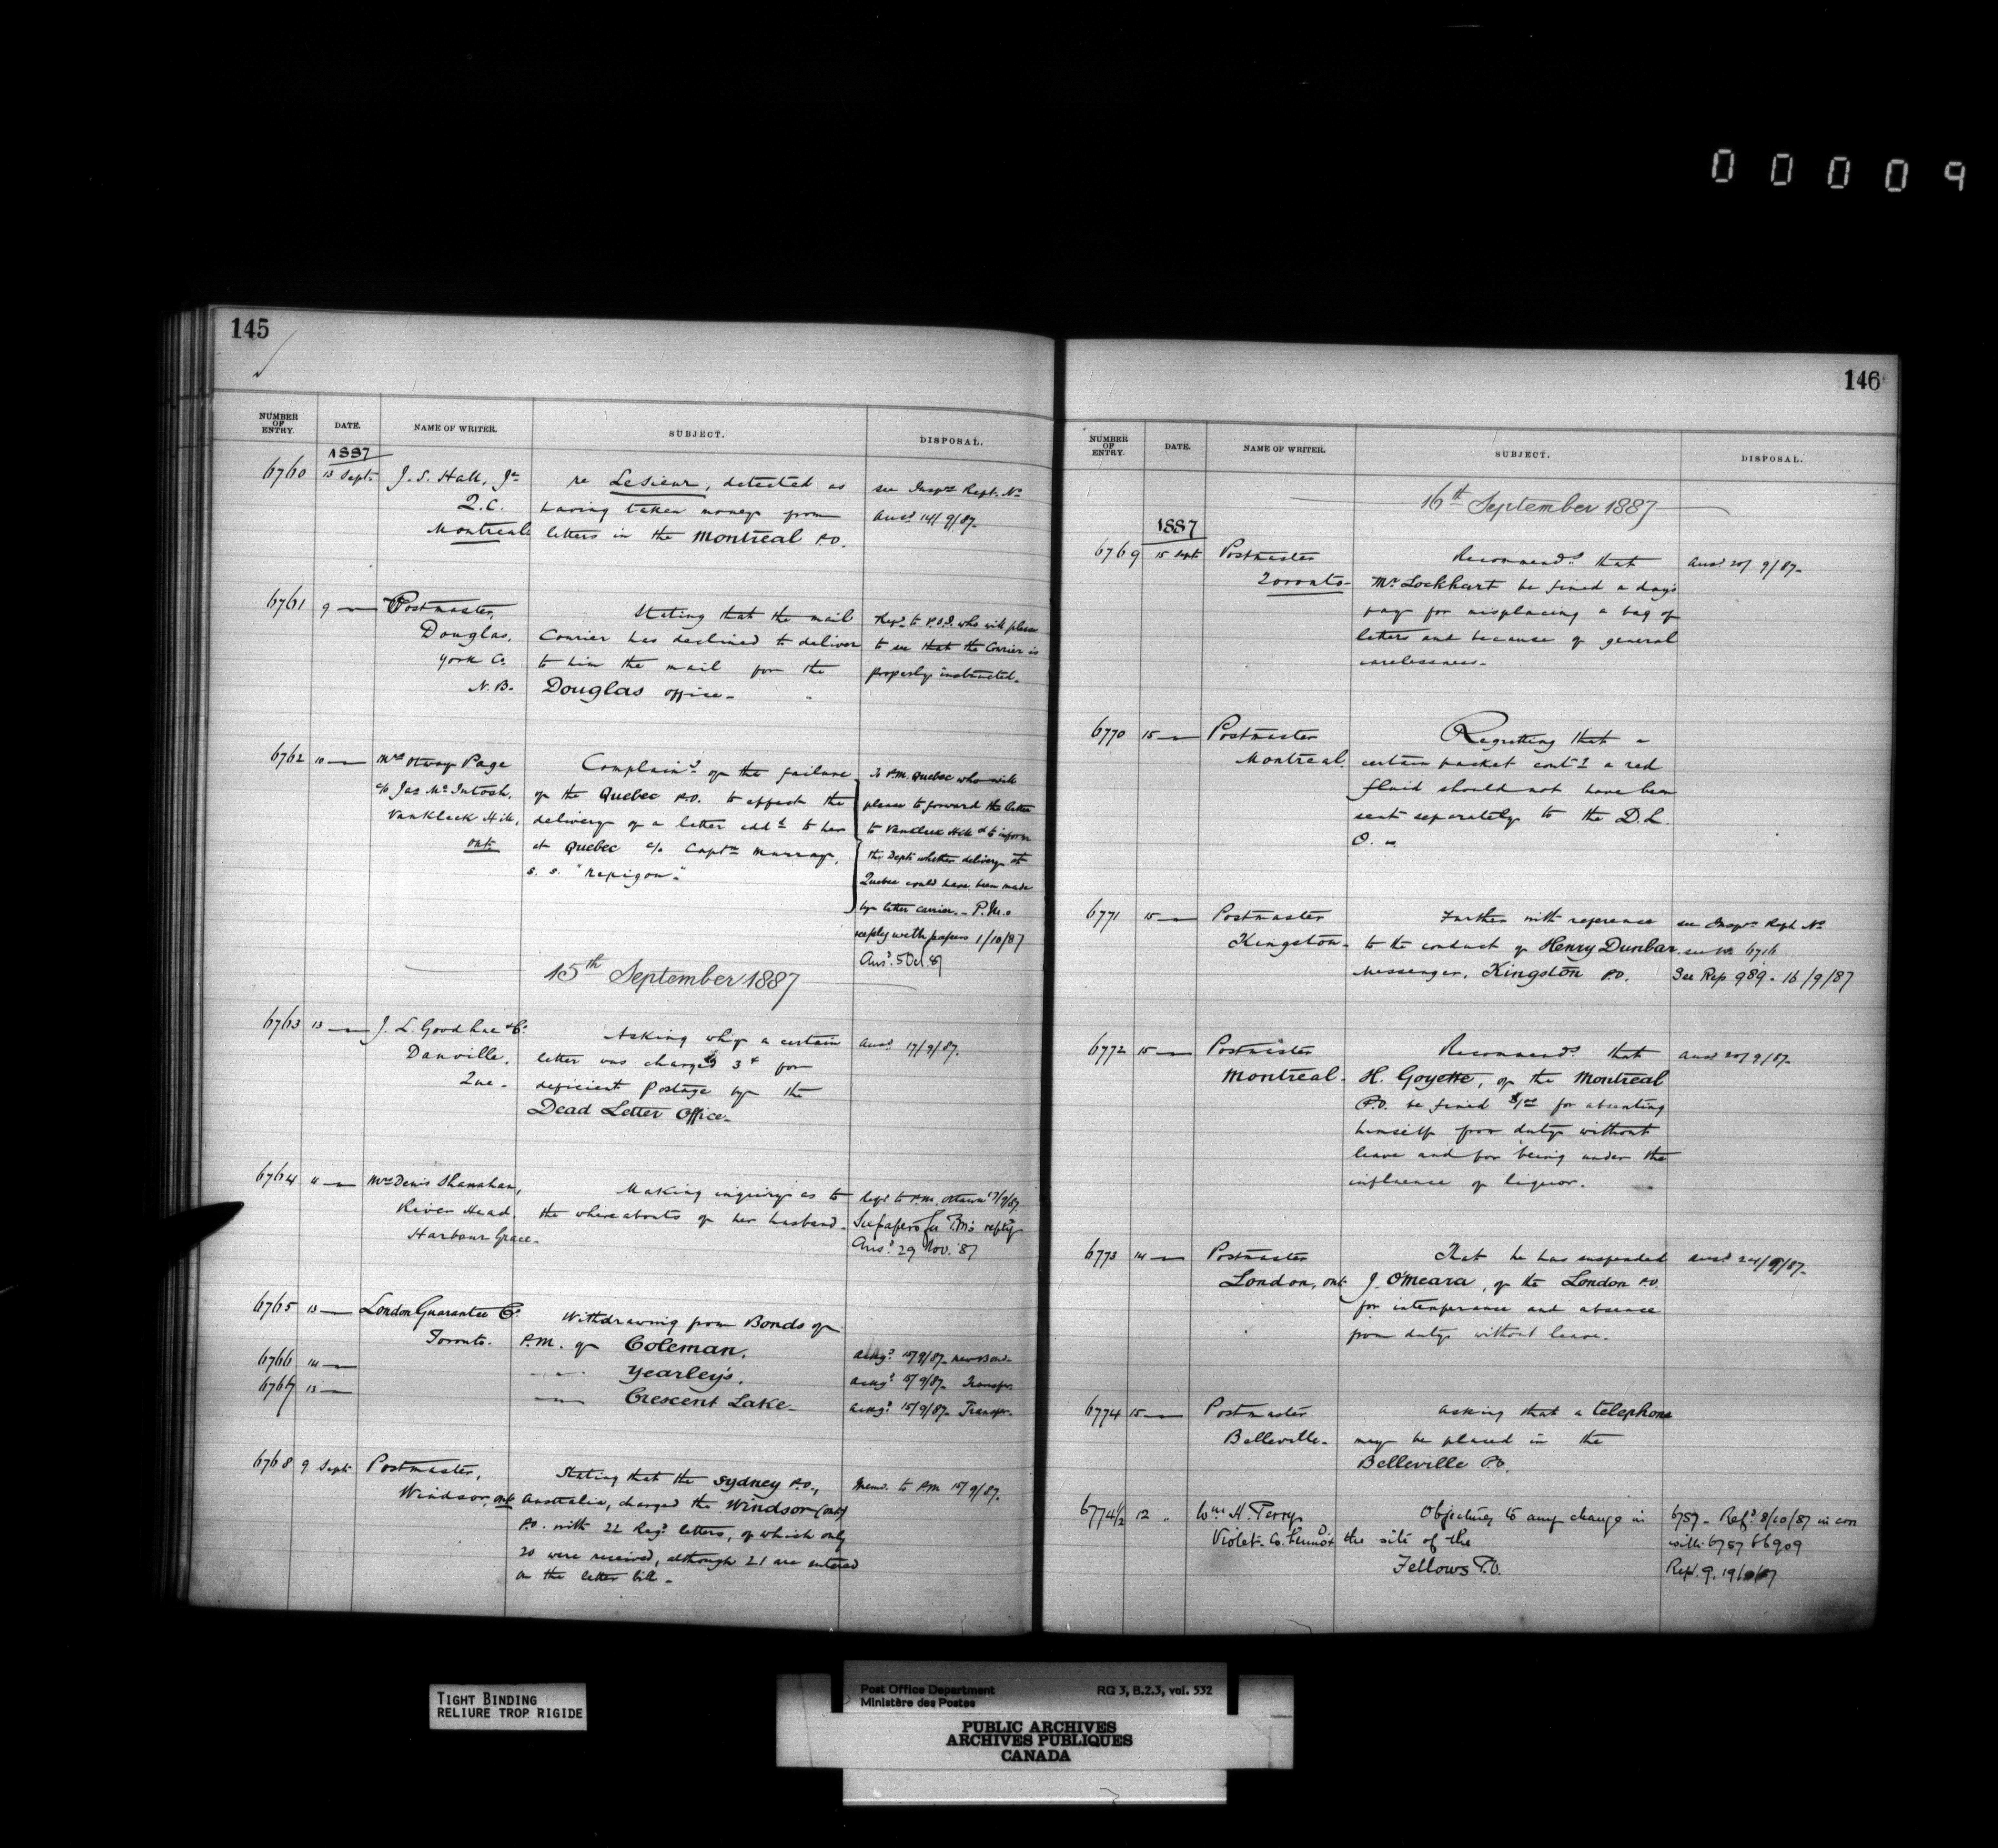 00009
145
NUMBER OF ENTRY. DATE. NAME OF WRITER. SUBJECT. DISPOSAL.
1887
6760 13 Sept. J. S. Hall, Jr re Lesieur, detected as see Inspr's Rept. No
Q.C. having taken money from Ansd 14/9/87.
Montreal letters in the Montreal P.O.
6761 9 — Postmaster, Stating that the mail Refd to P.O.I. who will please
Douglas, Courier has declined to deliver to see that the Courier is
York Co. to him the mail for the properly instructed.
N.B. Douglas office.
6762 10 — Mrs Otway Page Complaing of the failure To P.M. Quebec who will
c/o Jas McIntosh, of the Quebec P.O. to effect the please to forward the letter
Vankleek Hill, delivery of a letter addd to her to Vankleek Hill & to inform
Ont. at Quebec c/o Captn Murray, the Dept. whether delivery at
s. s. "Nepigon". Quebec could have been made
by letter carrier. P.M.'s
reply with papers 1/10/87
Ansd. 5 Oct. 87
15th September 1887
6763 13 — J. L. Goodhue & Co. Asking why a certain Ansd 17/9/87.
Danville, letter was charged 3¢ for
Que. deficient postage by the
Dead Letter Office.
6764 11 — Mrs Denis Shanahan, Making inquiry as to Refd to P.M. Ottawa 17/9/87
River Head, the whereabouts of her husband. See papers for P.M.'s reply
Harbour Grace. Ansd 29 Nov. '87
6765 13 — London Guarantee Co. Withdrawing from Bonds of
Toronto. P.M. of Coleman. Ackgd 15/9/87. New Bond.
6766 14 — " " Yearley's. Ackgd 15/9/87. Transfer.
6767 13 — — Crescent Lake. Ackgd 15/9/87. Transfer.
6768 9 Sept. Postmaster, Stating that the Sydney P.O., Memo. to P.M. 15/9/87.
Windsor, Ont. Australia, charged the Windsor (Ont.)
P.O. with 22 Regd letters, of which only
20 were received, although 21 are entered
on the letter bill.
146
NUMBER OF ENTRY. DATE. NAME OF WRITER. SUBJECT. DISPOSAL.
16th September 1887
1887
6769 15 Sept. Postmaster Recommendg that Ansd 20/9/87.
Toronto. Mr Lockhart be fined a day's
pay for misplacing a bag of
letters and because of general
carelessness.
6770 15 — Postmaster Regretting that a
Montreal. certain packet contg a red
fluid should not have been
sent separately to the D.L.
O.
6771 15 — Postmaster Further with reference see Inspr's Rept No
Kingston. to the conduct of Henry Dunbar, see No 6716
Messenger, Kingston P.O. See Rep 989. 16/9/87
6772 15 — Postmaster Recommendg that Ansd 20/9/87.
Montreal. H. Goyette, of the Montreal
P.O. be fined $1.00 for absenting
himself from duty without
leave and for being under the
influence of liquor.
6773 14 — Postmaster That he has suspended Ansd 24/9/87.
London, Ont. J. O'Meara, of the London P.O.
for intemperance and absence
from duty without leave.
6774 15 — Postmaster Asking that a telephone
Belleville. may be placed in the
Belleville P.O.
6774½ 12 " Wm H. Perry Objecting to any change in 6757. Refd 8/10/87 in con
Violet. Co. Lennox the site of the with 6757 & 6909
Fellows P.O. Rept. 9. 19/10/87
TIGHT BINDING
RELIURE TROP RIGIDE
Post Office Department RG 3, B.2.3, vol. 532
Ministère des Postes
PUBLIC ARCHIVES
ARCHIVES PUBLIQUES
CANADA